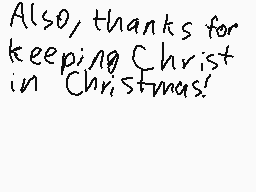 Also, thanks for
keeping Christ
in Christmas!